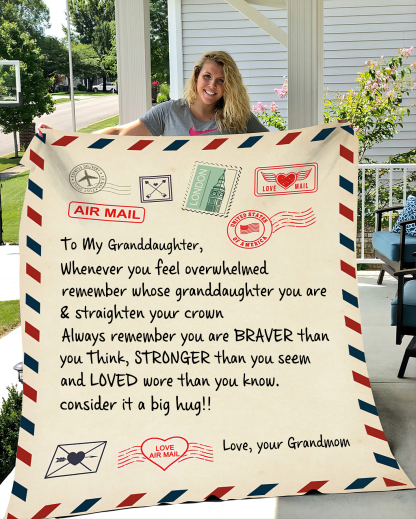 LONDON
LOVE MAIL
AIR MAIL
UNITED STATES
of AMERICA
To My Granddaughter,
Whenever you feel overwhelmed
remember whose granddaughter you are
& straighten your crown
Always remember you are BRAVER than
you Think, STRONGER than you seem
and LOVED wore than you know.
consider it a big hug!!
LOVE
AIR MAIL
Love, your Grandmom